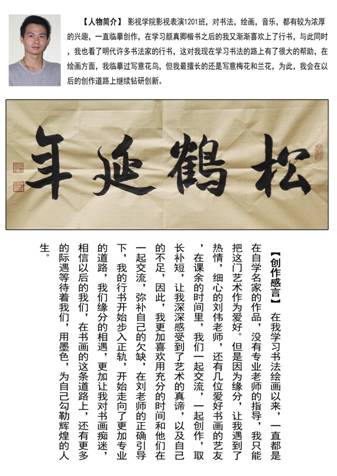 【人物简介】 影视学院影视表演1201班，对书法，绘画，音乐，都有较为浓厚
的兴趣，一直临摹创作，在学习颜真卿楷书之后的我又渐渐喜欢上了行书，与此同时
，我也看了明代许多书法家的行书，这对我现在学习书法的路上有了很大的帮助，在
绘画方面，我临摹过写意花鸟，但我最擅长的还是写意梅花和兰花，为此，我会在以
后的创作道路上继续钻研创新。
松鹤延年
【创作感言】 在我学习书法绘画以来，一直都是
在自学名家的作品，没有专业老师的指导，我只能
把这门艺术作为爱好。但是因为缘分，让我遇到了
热情，细心的刘伟老师，还有几位爱好书画的艺友
，在课余的时间里，我们一起交流，一起创作，取
长补短，让我深深感受到了艺术的真谛，以及自己
的不足，因此，我更加喜欢用充分的时间和他们在
一起交流，弥补自己的欠缺，在刘老师的正确引导
下，我的行书开始步入正轨，开始走向了更加专业
的道路，我们缘分的相遇，更加让我对书画痴迷，
相信以后的我们，在书画的这条道路上，还有更多
的际遇等待着我们，用墨色，为自己勾勒辉煌的人
生。